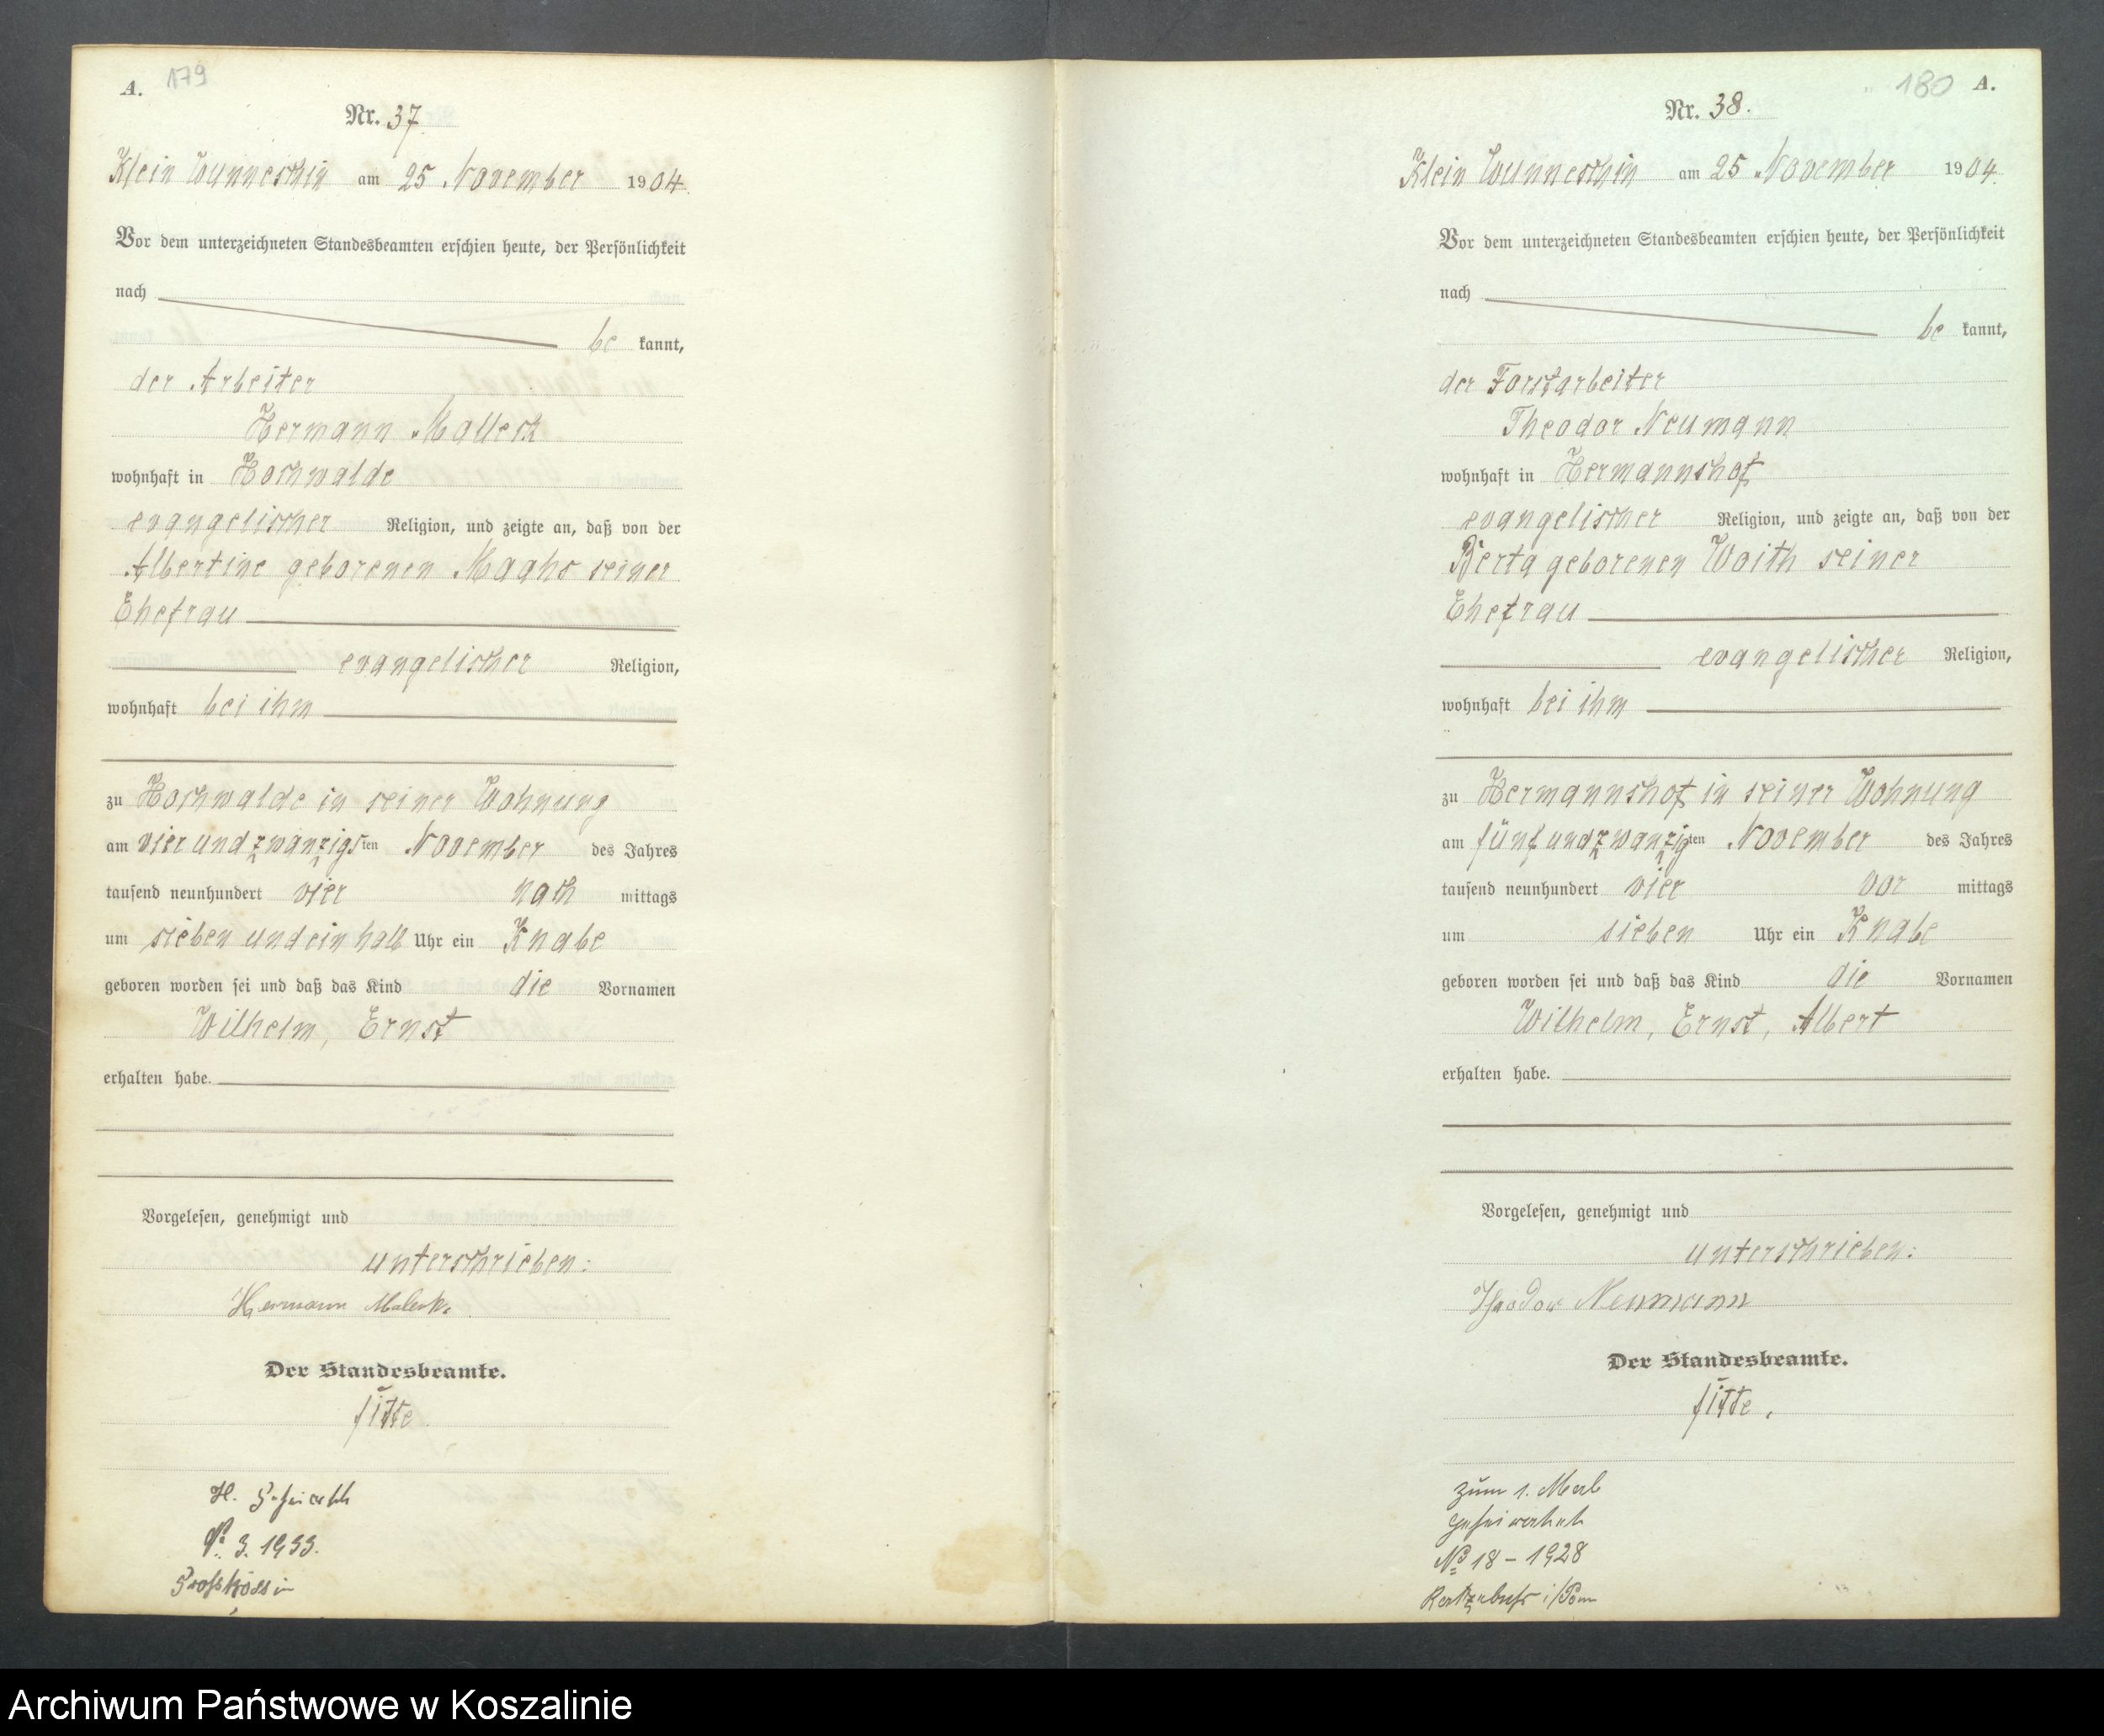 A. 179
Nr. 37
Klein Wunneschin am 25 November 1904.
Vor dem unterzeichneten Standesbeamten erschien heute, der Persönlichkeit
nach
be kannt,
der Arbeiter
Hermann Malleck
wohnhaft in Hochwalde
evangelischer Religion, und zeigte an, daß von der
Albertine geborenen Maahs seiner
Ehefrau
evangelischer Religion,
wohnhaft bei ihm
zu Hochwalde in seiner Wohnung
am vier und zwanzigsten November des Jahres
tausend neunhundert vier nach mittags
um sieben und ein halb Uhr ein Knabe
geboren worden sei und daß das Kind die Vornamen
Wilhelm, Ernst
erhalten habe.
Vorgelesen, genehmigt und
unterschrieben:
Hermann Maleck.
Der Standesbeamte.
H.
№ 3. 1933.
180 A.
Nr. 38.
Klein Wunneschin am 25 November 1904.
Vor dem unterzeichneten Standesbeamten erschien heute, der Persönlichkeit
nach
be kannt,
der Forstarbeiter
Theodor Neumann
wohnhaft in Hermannshof
evangelischer Religion, und zeigte an, daß von der
Berta geborenen Woith seiner
Ehefrau
evangelischer Religion,
wohnhaft bei ihm
zu Hermannshof in seiner Wohnung
am fünf und zwanzigten November des Jahres
tausend neunhundert vier vor mittags
um sieben Uhr ein Knabe
geboren worden sei und daß das Kind die Vornamen
Wilhelm, Ernst, Albert
erhalten habe.
Vorgelesen, genehmigt und
unterschrieben:
Theodor Neumann
Der Standesbeamte.
zum 1. Mal
geheiratet
№ 18 - 1928
Ratzebuhr i/Pom
Archiwum Państwowe w Koszalinie